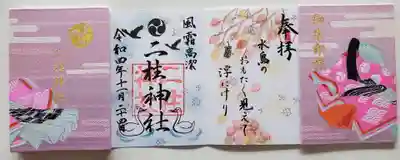 奉拝
水鳥の
おもたく見えて
浮にけり
風霜高潔
二柱神社
令和四年十一月二十四日